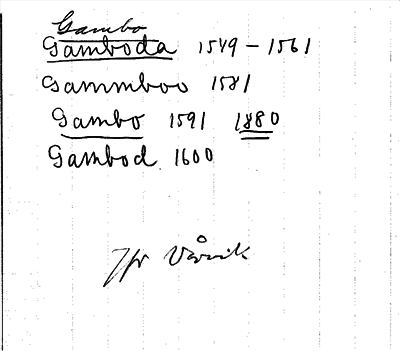 Gambo
Gamboda 1549-1561
Gammboo 1581
Gambo 1591 1880
Gambod 1600
Jfr Vårvik